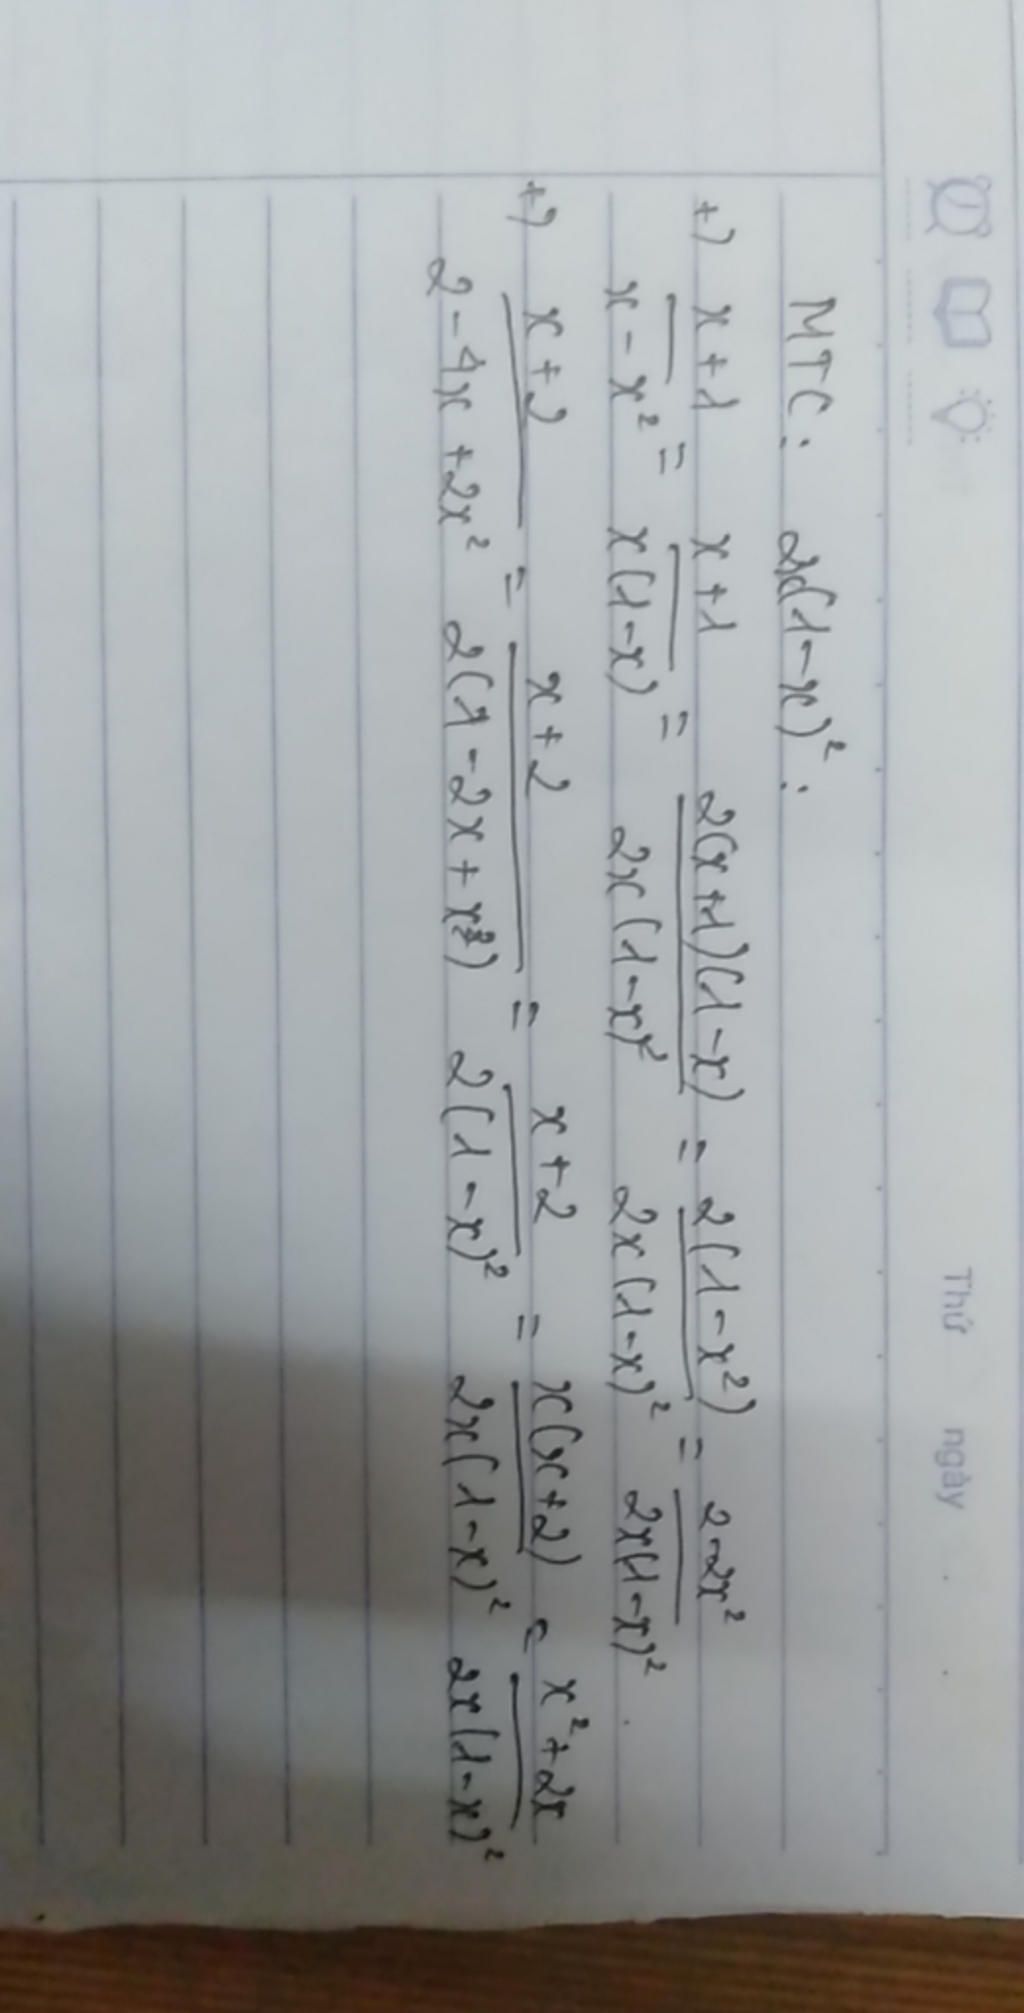 Thứ ngày
MTC: 2x(1-x)²:
+) \frac{x+1}{x-x²} = \frac{x+1}{x(1-x)} = \frac{2(x+1)(1-x)}{2x(1-x)²} = \frac{2(1-x²)}{2x(1-x)²} = \frac{2-2x²}{2x(1-x)²}.
+) \frac{x+2}{2-4x+2x²} = \frac{x+2}{2(1-2x+x²)} = \frac{x+2}{2(1-x)²} = \frac{x(x+2)}{2x(1-x)²} = \frac{x²+2x}{2x(1-x)²}